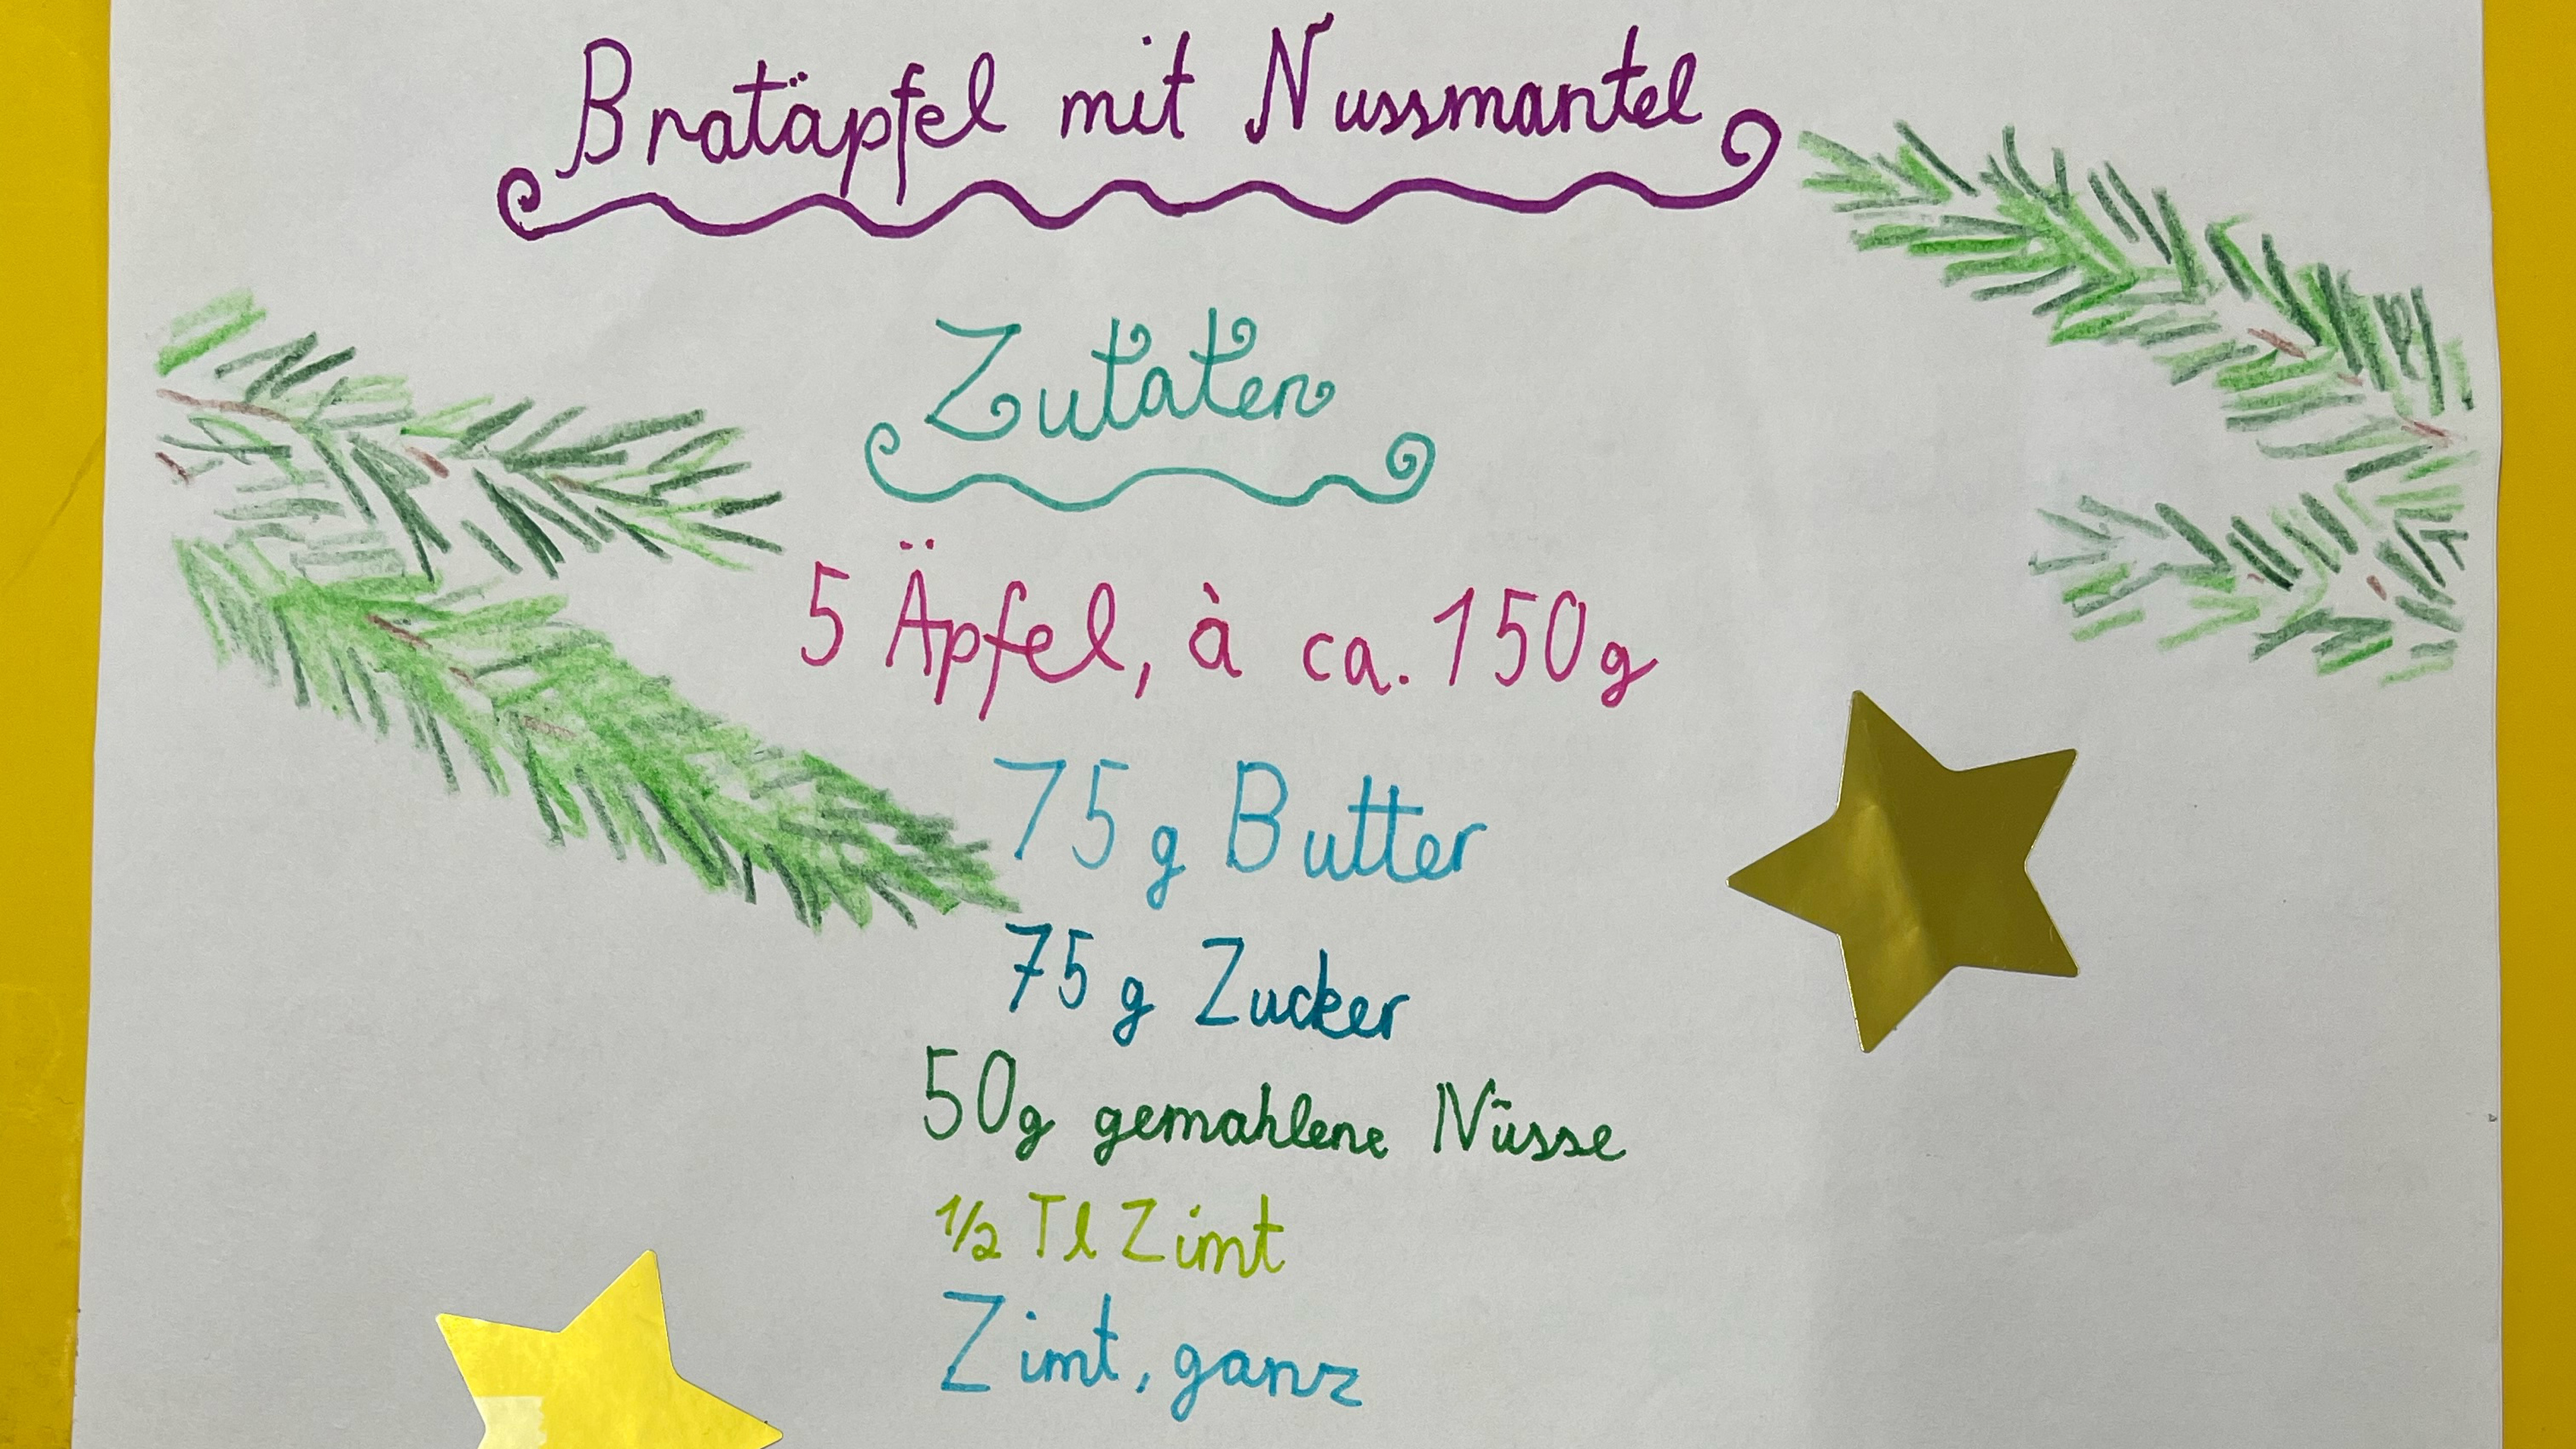 Bratäpfel mit Nussmantel
Zutaten
5 Äpfel, à ca. 150g
75 g Butter
75 g Zucker
50g gemahlene Nüsse
1/2 Tl Zimt
Zimt, ganz